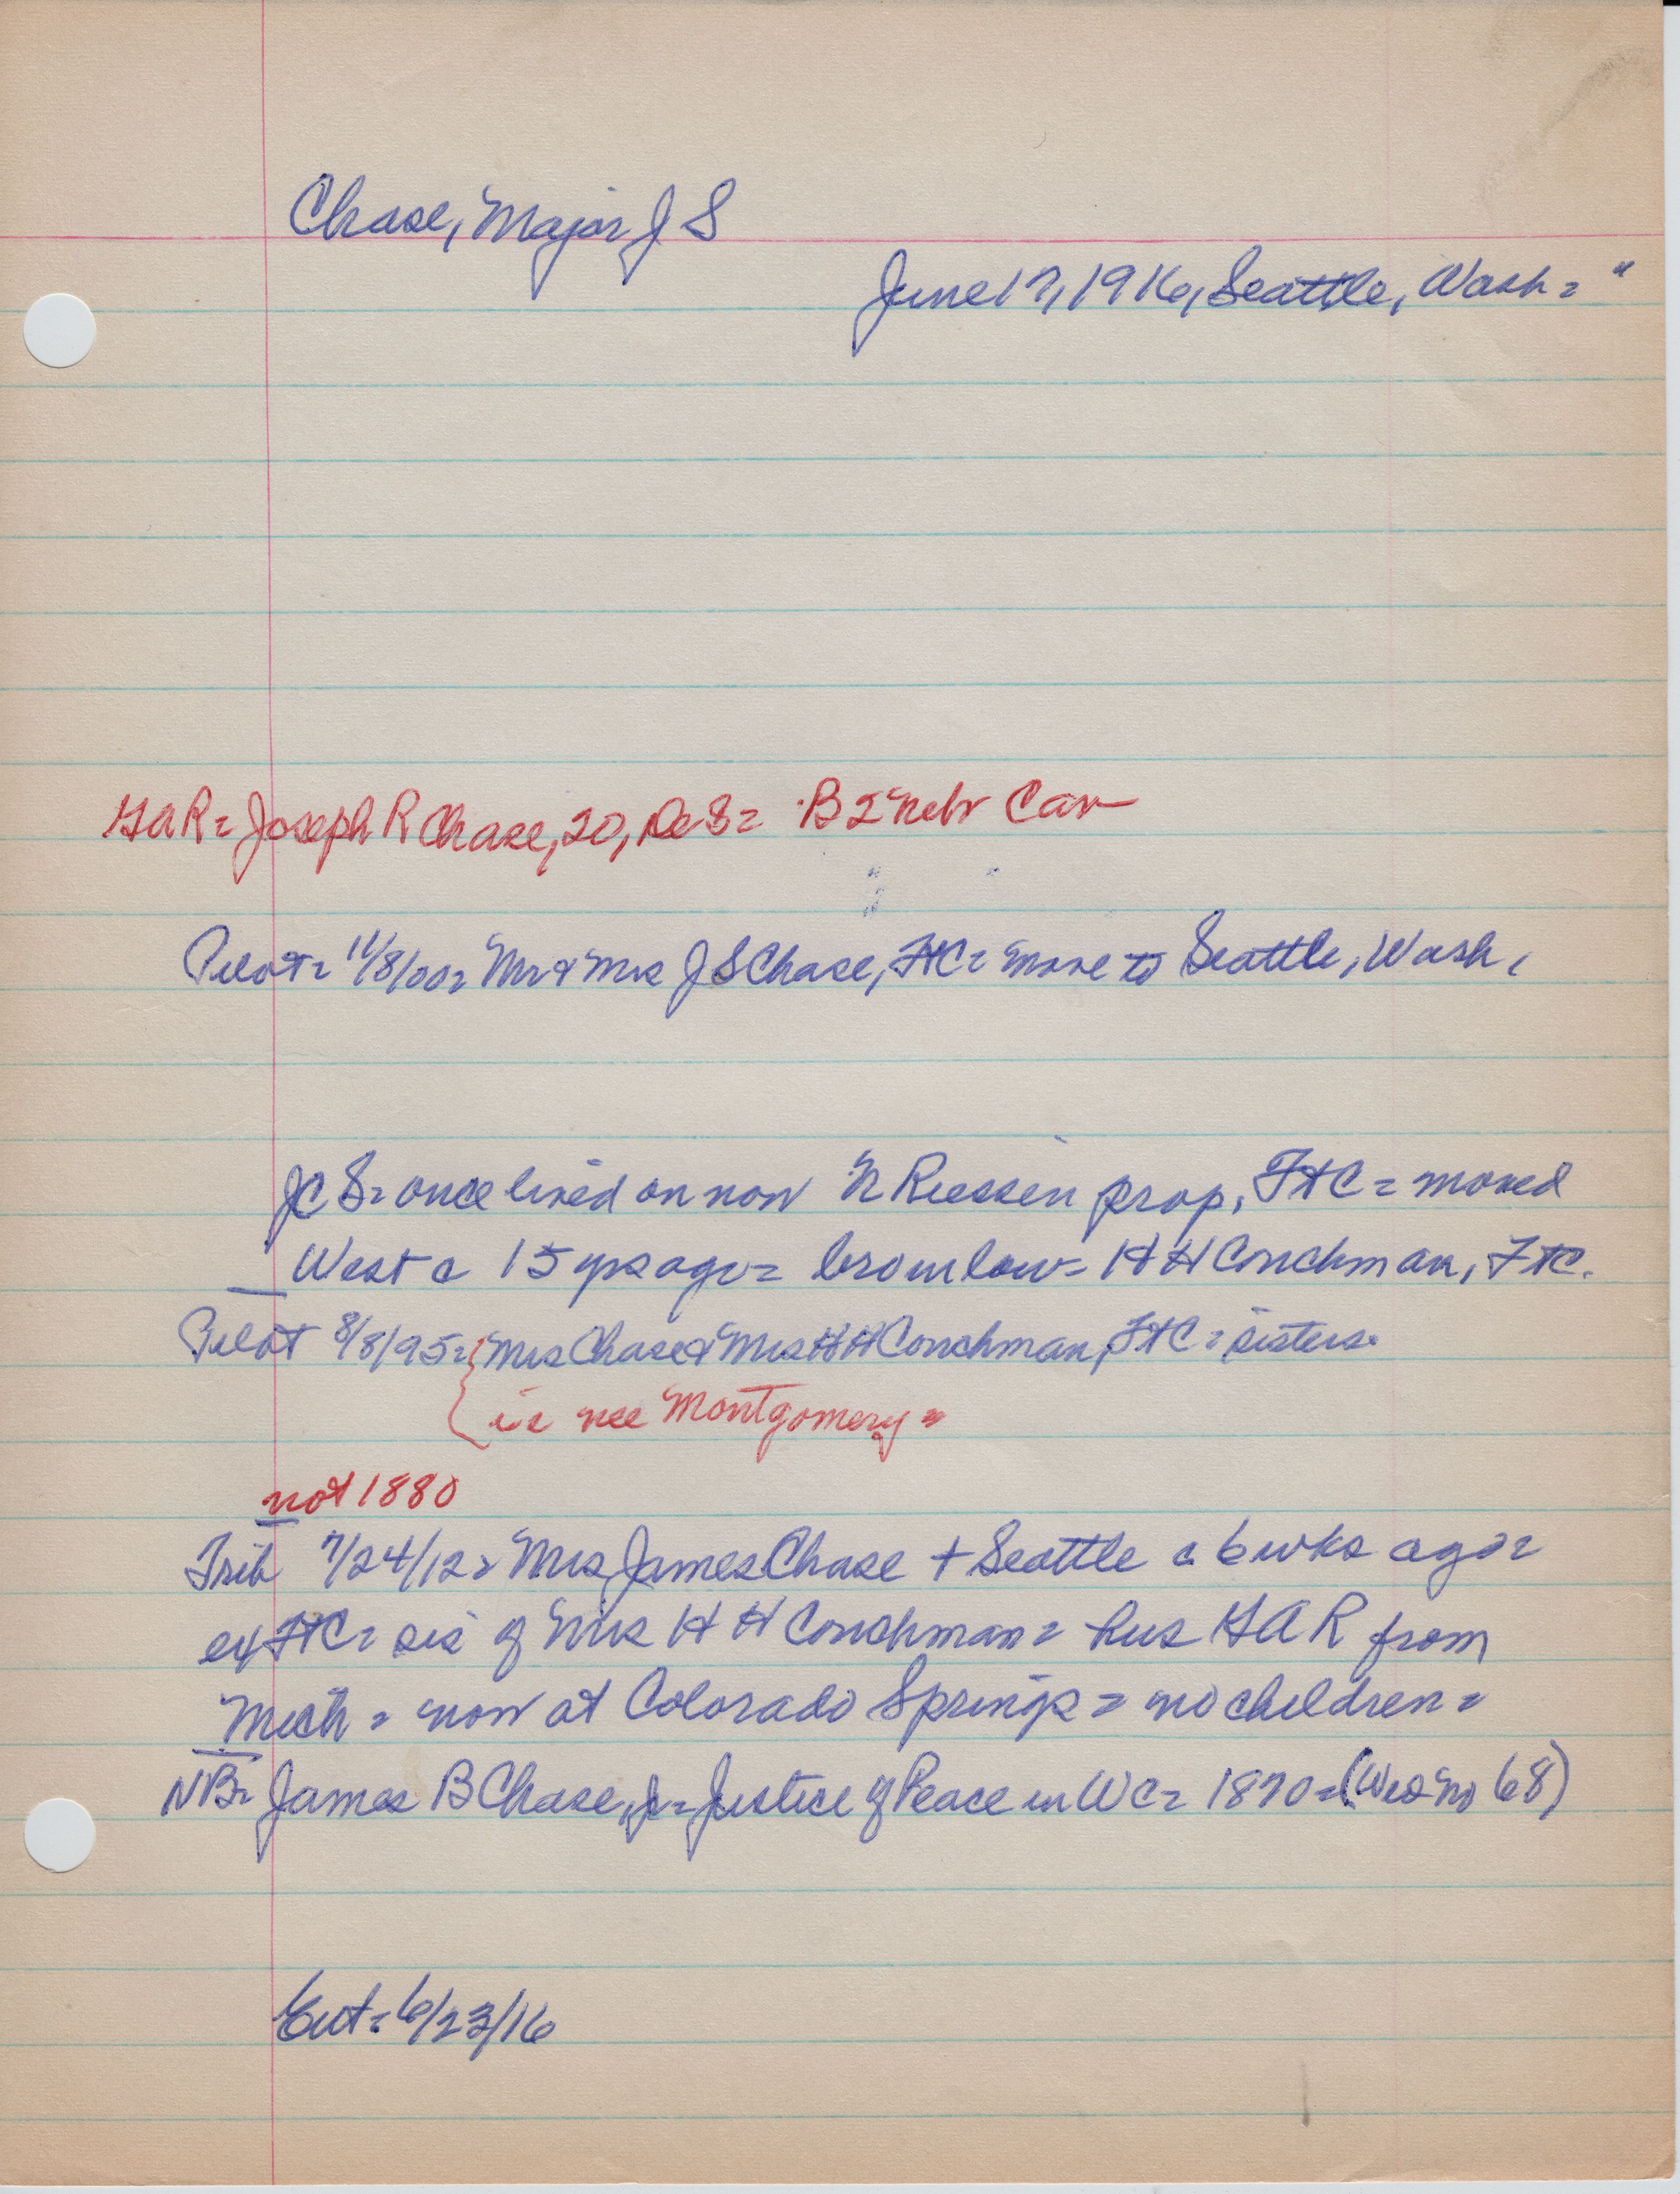 Chase, Major J S
June 17, 1916, Seattle, Wash = "
GAR = Joseph R Chase, 20, DeS = B 2 Nebr Cav
Pilot = 11/8/00 = Mr & Mrs J S Chase, FtC = move to Seattle, Wash,
JCS = once lived on now N Riessen prop, FtC = moved
West c 15 yrs ago = bro in law = H H Conchman, FtC.
Pilot 8/8/95 = { Mrs Chase & Mrs H H Conchman, FtC = sisters.
{ ie nee Montgomery =
not 1880
Trib 7/24/12 = Mrs James Chase + Seattle c 6 wks ago =
ex FtC = sis of Mrs H H Conchman = hus GAR from
Mich = now at Colorado Springs = no children =
NB = James B Chase, Jr = Justice of Peace in WC = 1870 = (Wes No 68)
Ent = 6/23/16